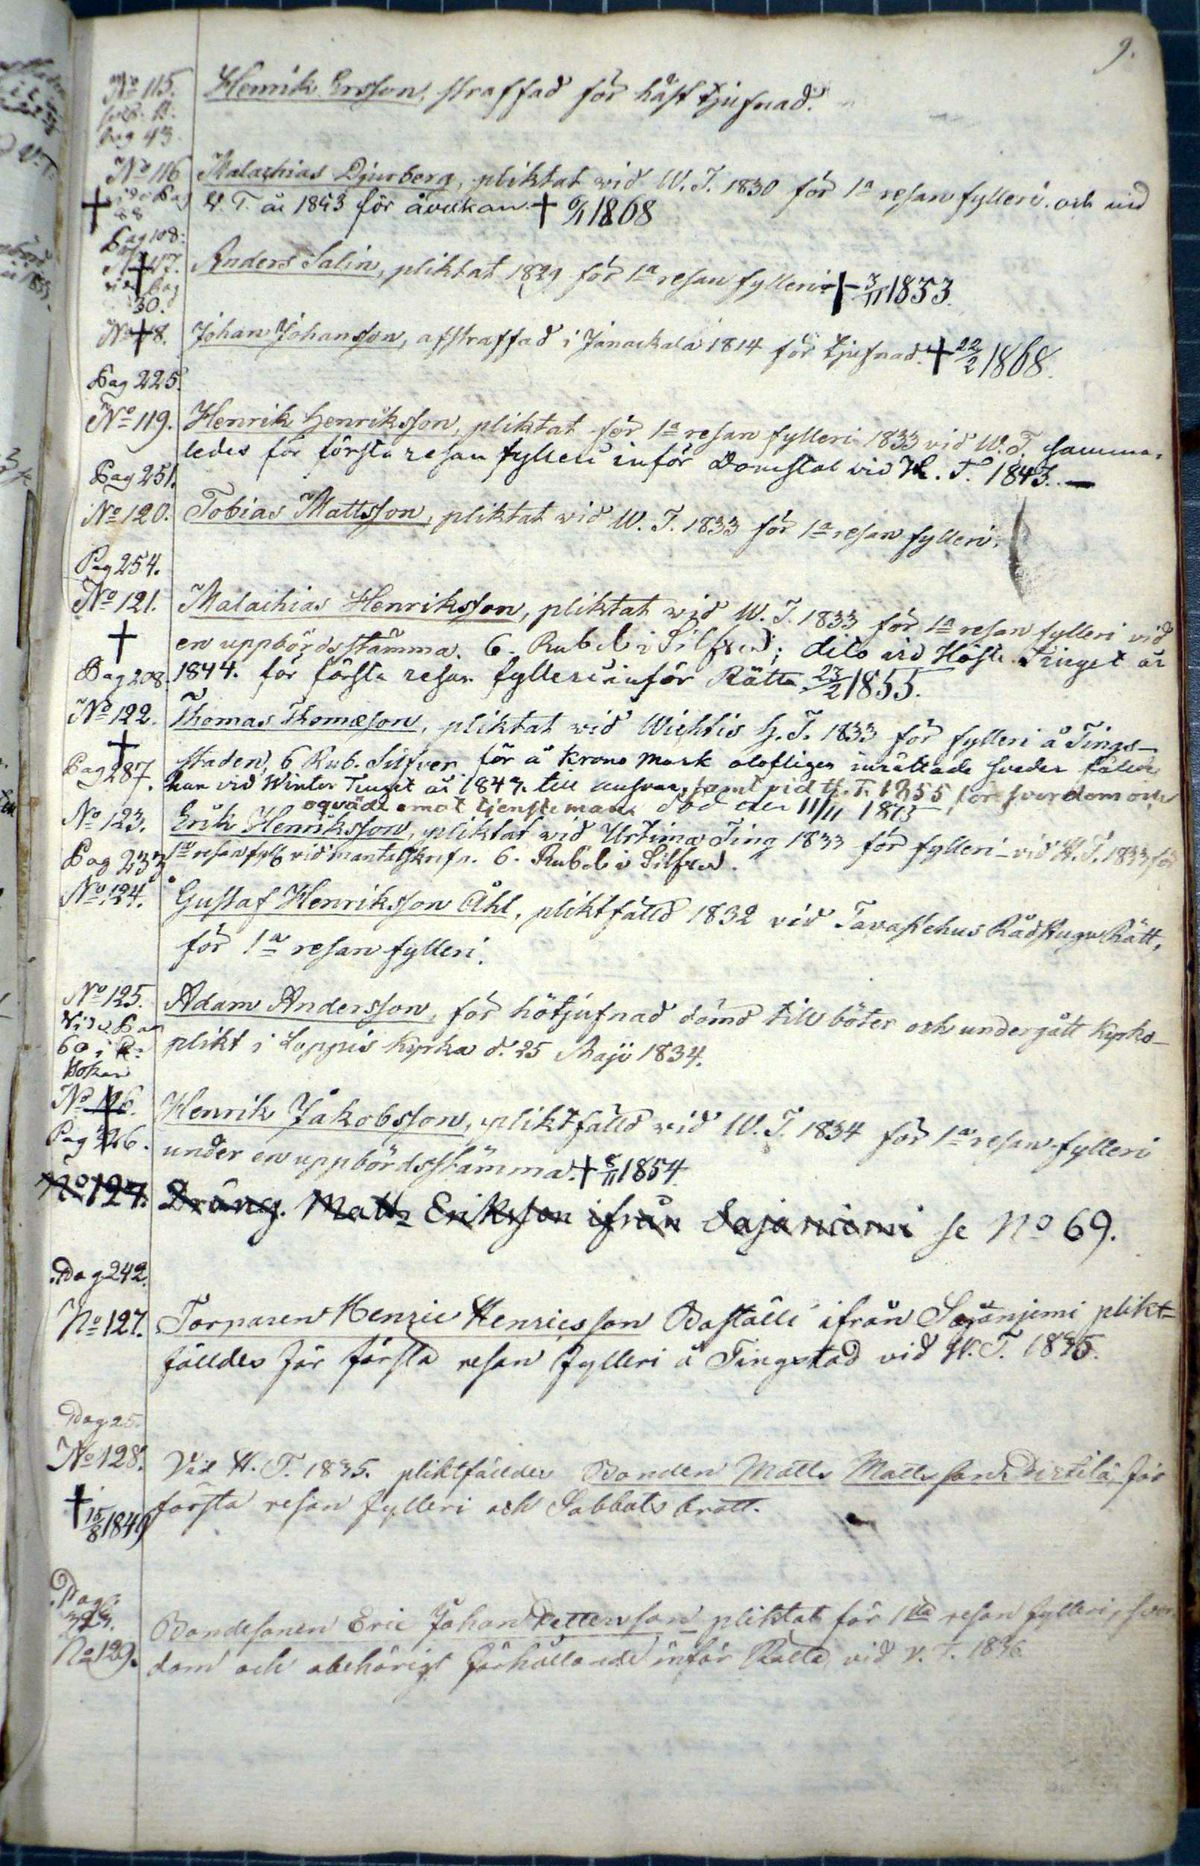 9.
No 115. Henrik Ersson, straffad för häst tjufnad.
Pag 43.
No 116 Malachias Djurberg, pliktat vid W. T. 1830 för 1a resan fylleri. och vid
vide Pag 88 V. T. år 1843 för åverkan † 1868
Pag 108:
No 117. Anders Salin, pliktat 1829 för 1a resan fylleri † 3/11 1853.
vide Pag 30.
No 118. Johan Johansson, afstraffad i Janackala 1814 för tjufnad. † 22/2 1868.
Pag 225.
No 119. Henrik Henriksson, pliktat för 1a resan fylleri 1833 vid W. T. samma-
ledes för första resan fylleri inför Domstol vid W. T. 1843. —
Pag 251.
No 120. Tobias Mattsson, pliktat vid W. T. 1833 för 1a resan fylleri.
Pag 254.
No 121. Malachias Henriksson, pliktat vid W. T. 1833 för 1a resan fylleri vid
† en uppbördsstämma. 6. Rubel i Silfver; dito vid Höste Tinget år
Pag 208. 1844. för första resan fylleri inför Rätta 23/2 1855.
No 122. Thomas Thomæson, pliktat vid Wichtis H. T. 1833 för fylleri å Tings-
† staden, 6 Rub. Silfver för å Krono Mark olofligen inrättade sveder fälld
Pag 287. han vid Winter Tinget år 1847. till ansvar, samt vid H. T. 1855 för svordom och
oqväde emot tjensteman. död den 11/11 1873
No 123. Erik Henriksson, pliktat vid Urtima Ting 1833 för fylleri - vid W. T. 1833 för
Pag 233 1a resan fyll. vid mantalskrifn. 6. Rubel i Silfver.
No 124. Gustaf Henriksson Åhl, pliktfälld 1832 vid Tavastehus Rådstugu Rätt,
för 1a resan fylleri.
No 125. Adam Andersson, för hötjufnad dömd till böter och undergått kyrko-
Vide Pag 60 i plikt i Loppis kyrka d. 25 Maji 1834.
boken
No 126. Henrik Jakobsson, pliktfälld vid W. T. 1834 för 1a resan fylleri
Pag 226. under en uppbördsstämma. † 1854.
No 127. Dräng. Matts Eriksson ifrån Sajaniemi se No 69.
Pag 242.
No 127. Torparen Henric Henricsson Boställi ifrån Sajaniemi plikt-
fälldes för första resan fylleri å Tingstad vid W. T. 1835.
Pag 25.
No 128. Vid W. T. 1835. pliktfälldes Bonden Matts Mattsson Pietilä för
† 15/8 1849 första resan fylleri och Sabbats brott.
Pag. 323.
No 129. Bondesonen Eric Johan Pettersson pliktat för 1sta resan fylleri, svor-
dom och obehörigt förhållande inför Rätta vid V. T. 1836